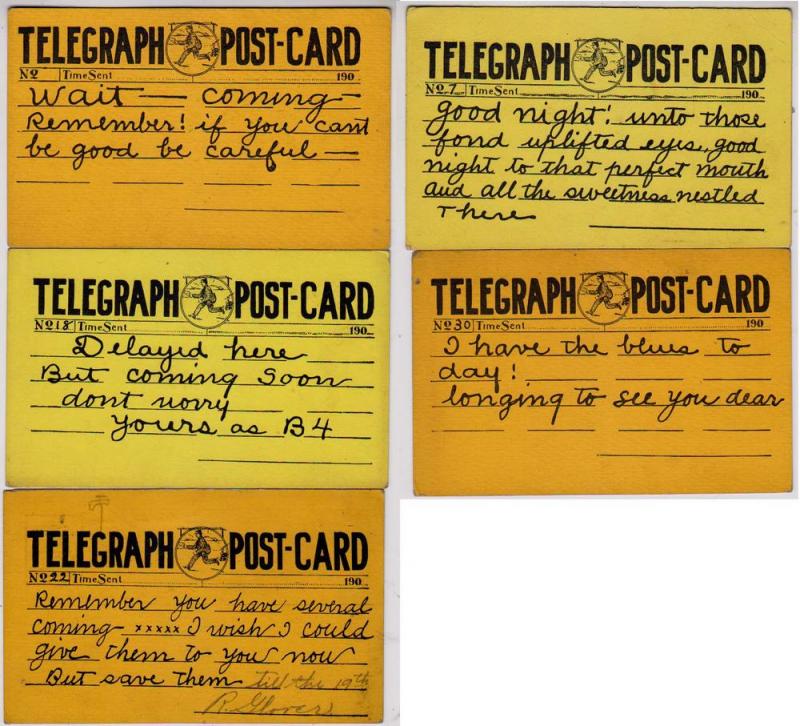 TELEGRAPH POST-CARD
No Time Sent 190
Wait — coming —
Remember! if you cant
be good be careful —
TELEGRAPH POST-CARD
No 18 Time Sent 190
Delayed here
But coming soon
dont worry
Yours as B4
TELEGRAPH POST-CARD
No 22 Time Sent 190
Remember you have several
coming — xxxxx I wish I could
give them to you now
But save them till the 19th
R. Glover
TELEGRAPH POST-CARD
No 7 Time Sent 190
good night! unto those
fond uplifted eyes, good
night to that perfect mouth
and all the sweetness nestled
There
TELEGRAPH POST-CARD
No 30 Time Sent 190
I have the blues to
day!
longing to see you dear